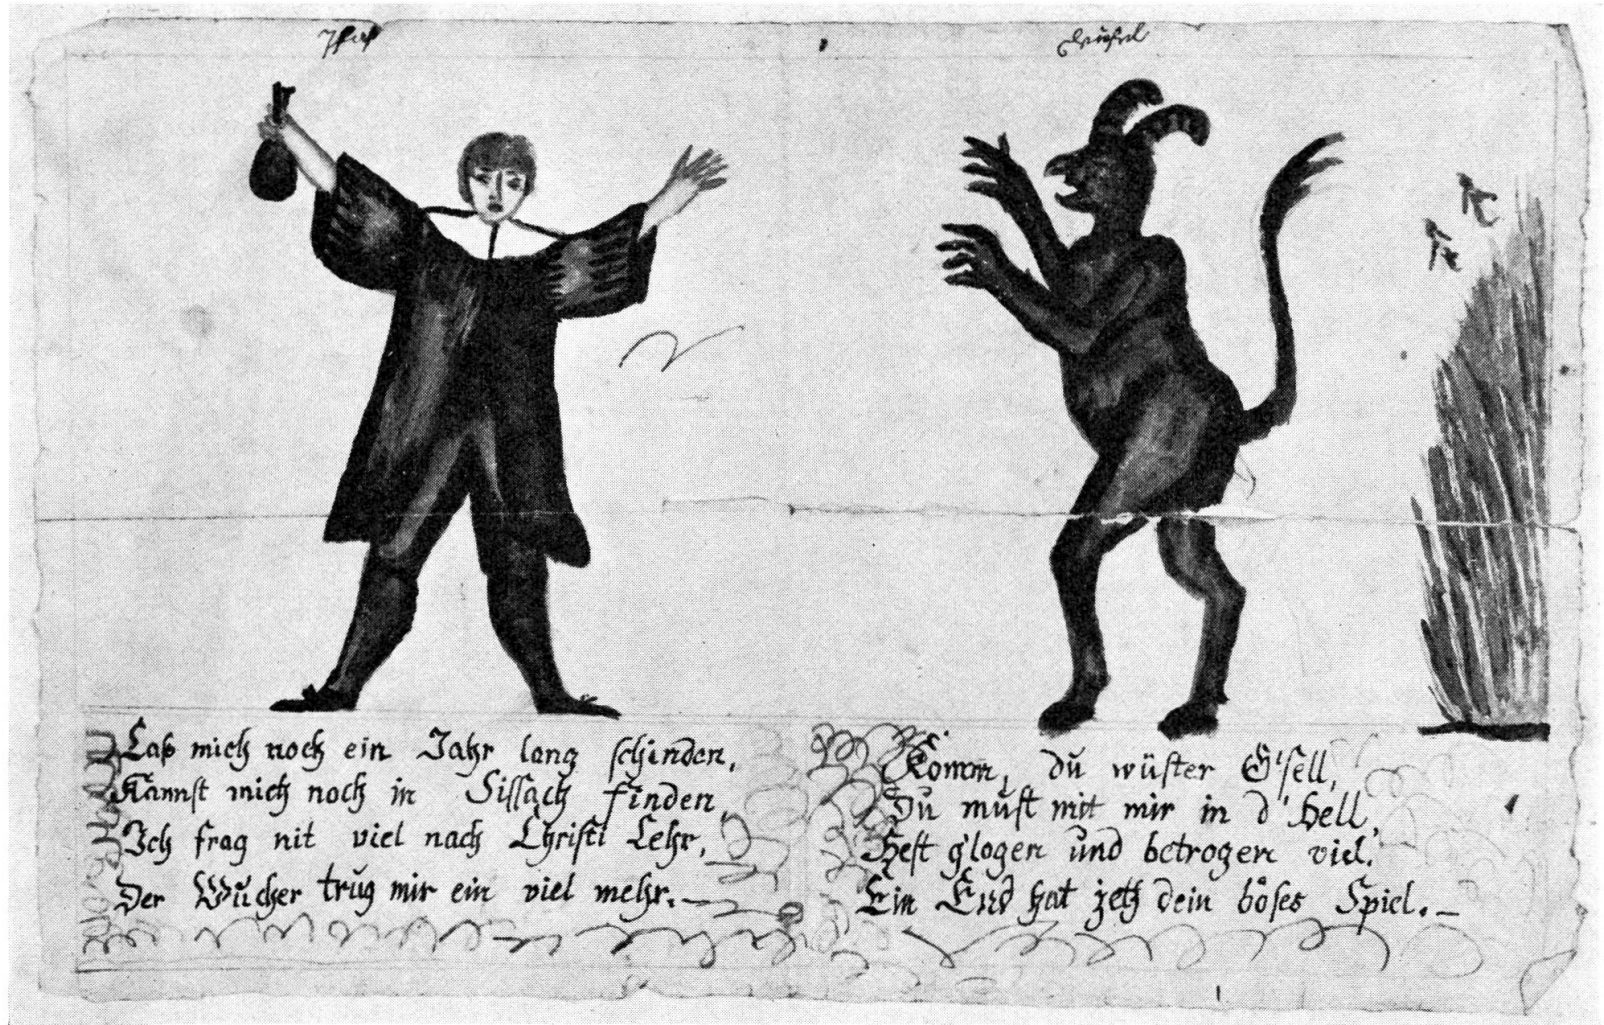 Pfaf
Teufel
Laß mich noch ein Jahr lang schinden,
Kannst mich noch in Sissach finden,
Ich frag nit viel nach Christi Lehr,
Der Wucher trug mir ein viel mehr.–
Komm, du wüster G'sell,
Du must mit mir in d'Hell,
Hest g'logen und betrogen viel.
Ein End hat jetz dein böses Spiel.–